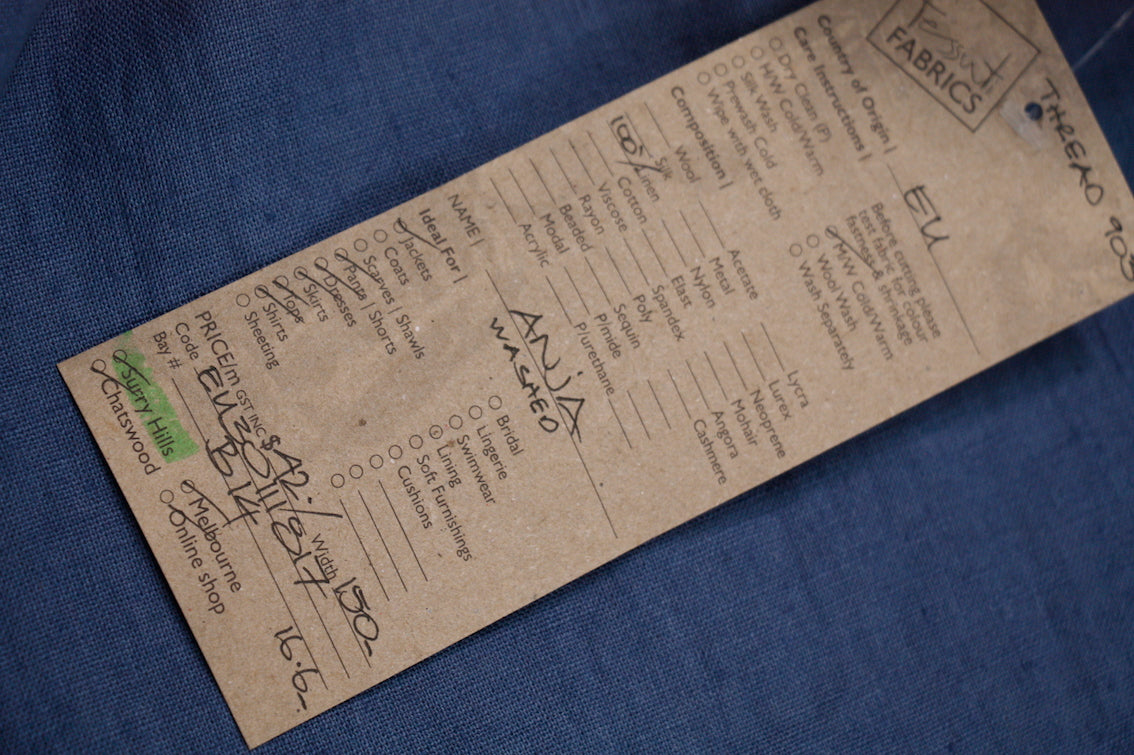 Tessuti
FABRICS
THREAD 903
Country of Origin | EU
Care Instructions |
Before cutting please
test fabric for colour
fastness & shrinkage
Dry Clean (P)
H/W Cold/Warm
Silk Wash
Prewash Cold
Wipe with wet cloth
M/W Cold/Warm
Wool Wash
Wash Separately
Composition |
Wool
Silk
100% Linen
Cotton
Viscose
Rayon
Beaded
Modal
Acrylic
Acetate
Metal
Nylon
Elast
Spandex
Poly
Sequin
P/mide
P/urethane
Lycra
Lurex
Neoprene
Mohair
Angora
Cashmere
NAME | ANJA
WASHED
Ideal For |
Jackets
Coats
Scarves | Shawls
Pants | Shorts
Dresses
Skirts
Tops
Shirts
Sheeting
Bridal
Lingerie
Swimwear
Lining
Soft Furnishings
Cushions
PRICE/m GST INC $42./ Width 150
Code
Bay # B14
16.6
Surry Hills
Chatswood
Melbourne
Online shop